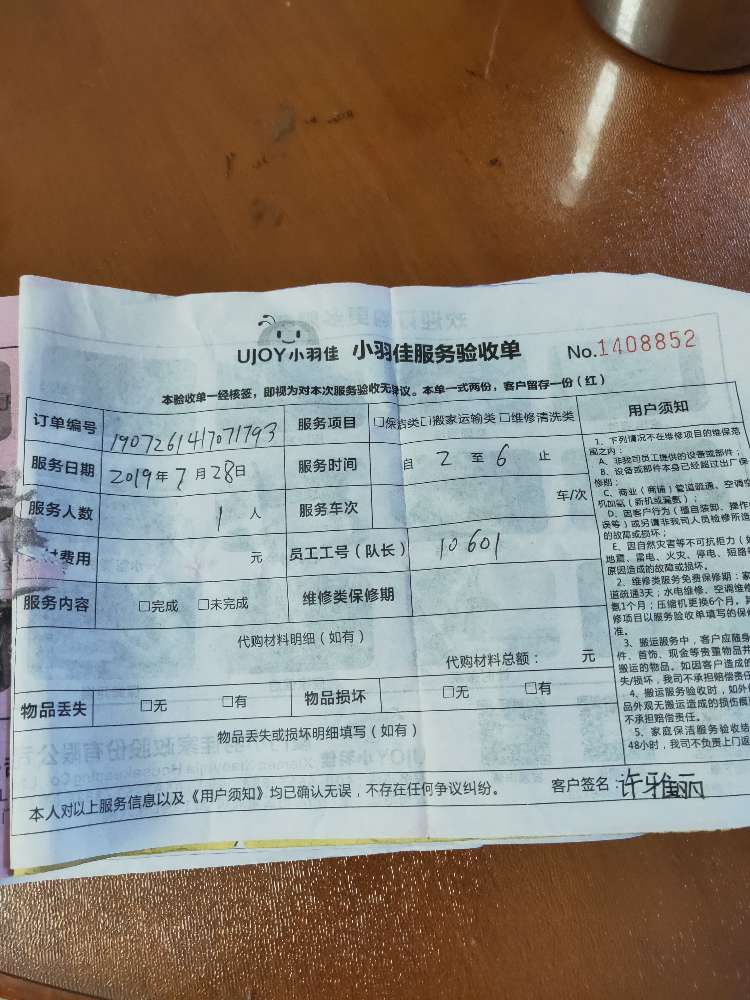 UJOY小羽佳 小羽佳服务验收单 No.1408852
本验收单一经核签，即视为对本次服务验收无异议。本单一式两份，客户留存一份（红）
订单编号 1907261417071793 服务项目 □保洁类□搬家运输类□维修清洗类 用户须知
服务日期 2019年7月28日 服务时间 自 2 至 6 止
服务人数 1 人 服务车次 车/次
付费用 元 员工工号（队长） 10601
服务内容 □完成 □未完成 维修类保修期
代购材料明细（如有）
代购材料总额： 元
物品丢失 □无 □有 物品损坏 □无 □有
物品丢失或损坏明细填写（如有）
本人对以上服务信息以及《用户须知》均已确认无误，不存在任何争议纠纷。 客户签名：许雅丽
1、下列情况不在维修项目的维保范
围之内：
A、非我司员工提供的设备或部件；
B、设备或部件本身已经超过出厂保
修期；
C、商业（商铺）管道疏通、空调空
机加氨（新机或漏氨）；
D、因客户行为（擅自装卸、操作
误等）或另请非我司人员检修所造
的故障或损坏；
E、因自然灾害等不可抗拒力（如
地震、雷电、火灾、停电、短路
原因造成的故障或损坏。
2、维修类服务免费保修期：家
道疏通3天；水电维修、空调维
氨1个月；压缩机更换6个月。其
修项目以服务验收单填写的保
准。
3、搬运服务中，客户应随身
件、首饰、现金等贵重物品并
搬运的物品。如因客户造成的
失/损坏，我司不承担赔偿责任
4、搬运服务验收时，如外
品外观无搬运造成的损伤痕
不承担赔偿责任。
5、家庭保洁服务验收结
48小时，我司不负责上门返